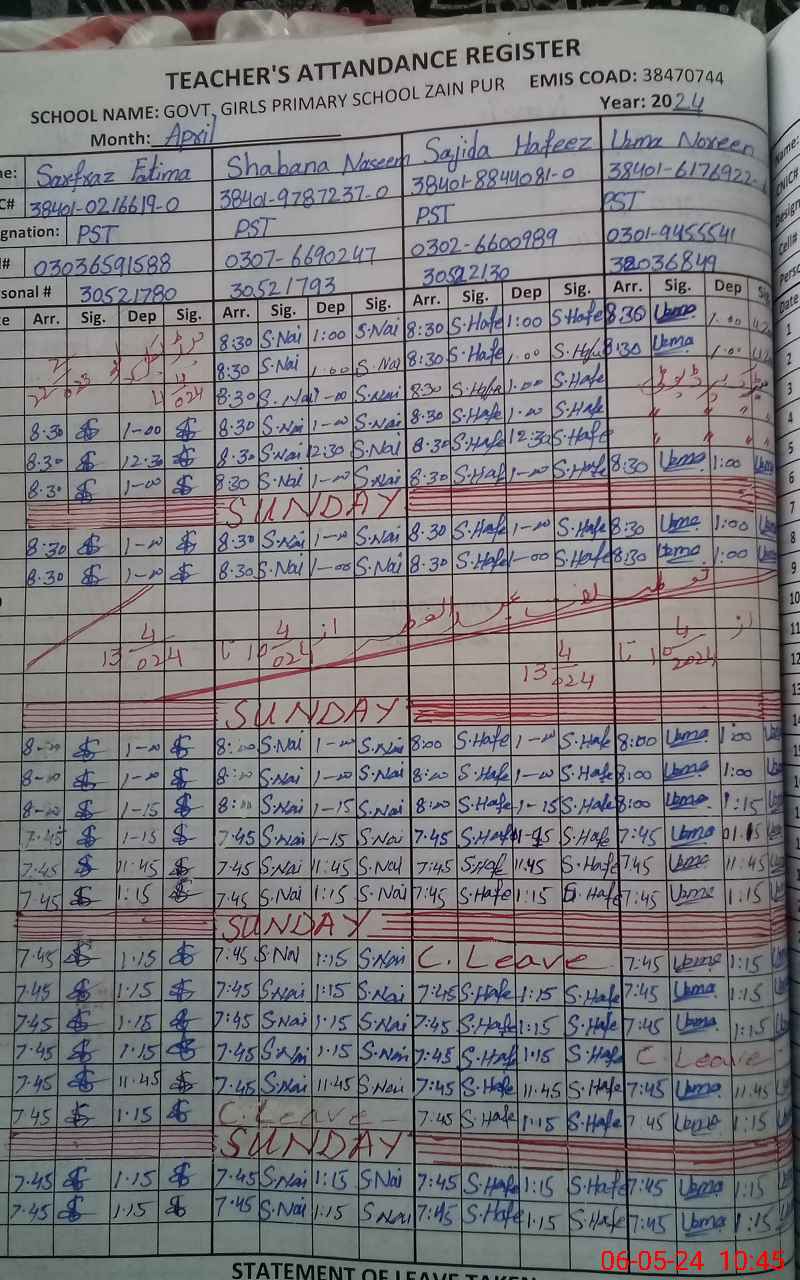 TEACHER'S ATTANDANCE REGISTER
SCHOOL NAME: GOVT, GIRLS PRIMARY SCHOOL ZAIN PUR EMIS COAD: 38470744
Month: April Year: 2024
Sarfraz Fatima Shabana Naseem Sajida Hafeez Uzma Noreen
38401-0216619-0 38401-9787237-0 38401-8844081-0 38401-6176922-
PST PST PST PST
03036591588 0307-6690247 0302-6600989 0301-9455541
30521780 30521793 30522130 32036849
Arr. Sig. Dep Sig. Arr. Sig. Dep Sig. Arr. Sig. Dep Sig. Arr. Sig. Dep
8:30 S.Nai 1:00 S.Nai 8:30 S.Hafe 1:00 S.Hafe 8:30 Uzma 1:00
8:30 S.Nai 1:00 S.Nai 8:30 S.Hafe 1:00 S.Hafe 8:30 Uzma 1:00
8:30 S.Nai 1-00 S.Nai 8:30 S.Hafe 1:00 S.Hafe
8.30 1-00 8.30 S.Nai 1-00 S.Nai 8.30 S.Hafe 1-00 S.Hafe
8.30 12.30 8.30 S.Nai 12:30 S.Nai 8.30 S.Hafe 12:30 S.Hafe
8.30 1-00 8:30 S.Nai 1-00 S.Nai 8:30 S.Hafe 1-00 S.Hafe 8:30 Uzma 1:00 Uzma
SUNDAY
8.30 1-00 8.30 S.Nai 1-00 S.Nai 8.30 S.Hafe 1-00 S.Hafe 8:30 Uzma 1:00
8.30 1-00 8.30 S.Nai 1-00 S.Nai 8.30 S.Hafe 1-00 S.Hafe 8:30 Uzma 1:00
13 4/024 تا 10 4/024 از 13 4/024 تا 10 4/2024 از
SUNDAY
8-00 1-00 8:00 S.Nai 1-00 S.Nai 8:00 S.Hafe 1-00 S.Hafe 8:00 Uzma 1:00
8-00 1-00 8:00 S.Nai 1-00 S.Nai 8:00 S.Hafe 1-00 S.Hafe 8:00 Uzma 1:00
8-00 1-15 8:00 S.Nai 1-15 S.Nai 8:00 S.Hafe 1-15 S.Hafe 8:00 Uzma 1:15
7.45 1-15 7.45 S.Nai 1-15 S.Nai 7.45 S.Hafe 1-15 S.Hafe 7:45 Uzma 01:15
7.45 11.45 7.45 S.Nai 11:45 S.Nai 7:45 S.Haf 11:45 S.Hafe 7:45 Uzma 11:45
7.45 1:15 7.45 S.Nai 1:15 S.Nai 7:45 S.Hafe 1:15 S.Hafe 7:45 Uzma 1:15
SUNDAY
7.45 1.15 7:45 S.Nai 1:15 S.Nai C. Leave 7:45 Uzma 1:15
7.45 1.15 7:45 S.Nai 1:15 S.Nai 7:45 S.Hafe 1:15 S.Hafe 7:45 Uzma 1:15
7.45 1.15 7:45 S.Nai 1.15 S.Nai 7:45 S.Hafe 1:15 S.Hafe 7:45 Uzma 1:15
7.45 1.15 7.45 S.Nai 1.15 S.Nai 7:45 S.Haf 1:15 S.Hafe C. Leave
7.45 11.45 7.45 S.Nai 11.45 S.Nai 7:45 S.Hafe 11.45 S.Hafe 7:45 Uzma 11.45
7.45 1.15 C. Leave 7.45 S.Hafe 1:15 S.Hafe 7:45 Uzma 1:15
SUNDAY
7.45 1.15 7.45 S.Nai 1:15 S.Nai 7:45 S.Hafe 1:15 S.Hafe 7:45 Uzma 1:15
7.45 1.15 7.45 S.Nai 1:15 S.Nai 7:45 S.Hafe 1:15 S.Hafe 7:45 Uzma 1:15
STATEMENT OF LEAVE TAKEN
06-05-24 10:45